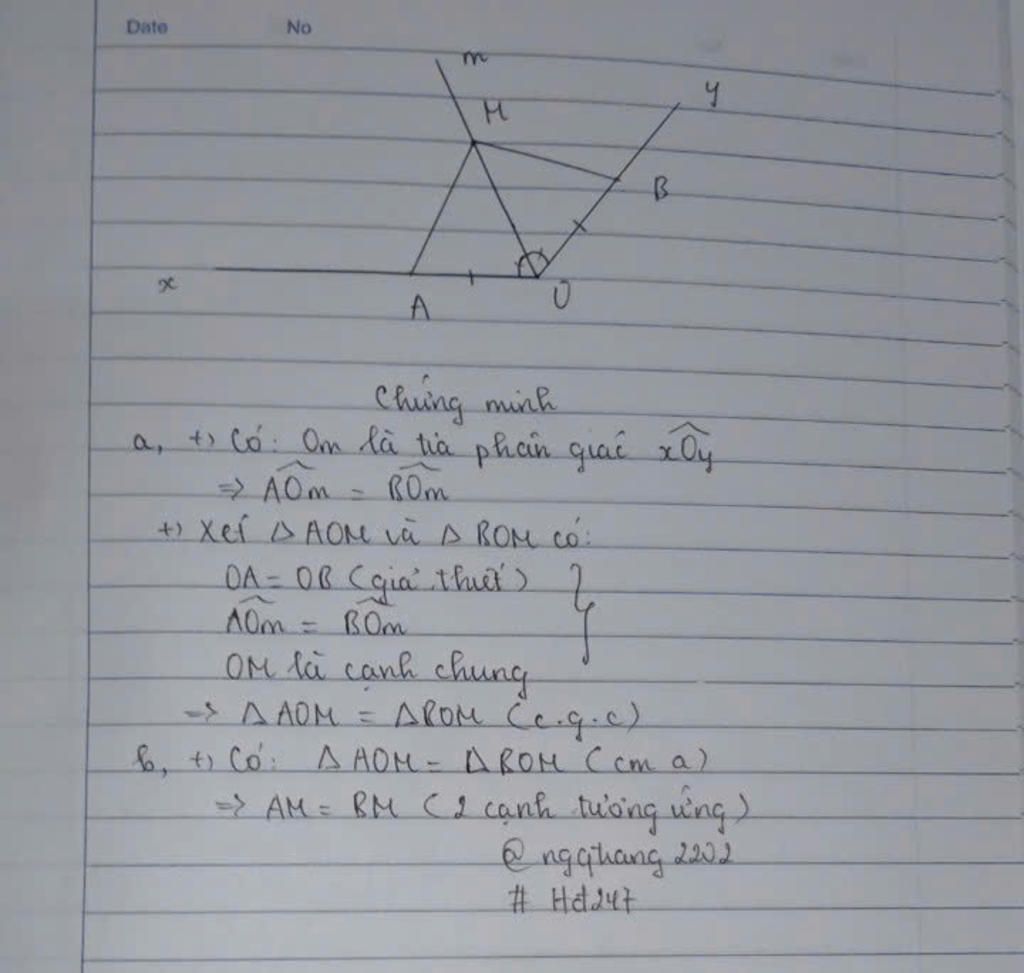 Date No
m
M
y
B
x
A
O
Chứng minh
a, +) Có: Om là tia phân giác xÔy
=> AÔm = BÔm
+) Xét Δ AOM và Δ BOM có:
OA = OB (giả thuết)
AÔm = BÔm
OM là cạnh chung
=> Δ AOM = Δ BOM (c.g.c)
b, +) Có: Δ AOM = Δ BOM (cm a)
=> AM = BM (2 cạnh tương ứng)
@ ngqthang 2202
# Hd247